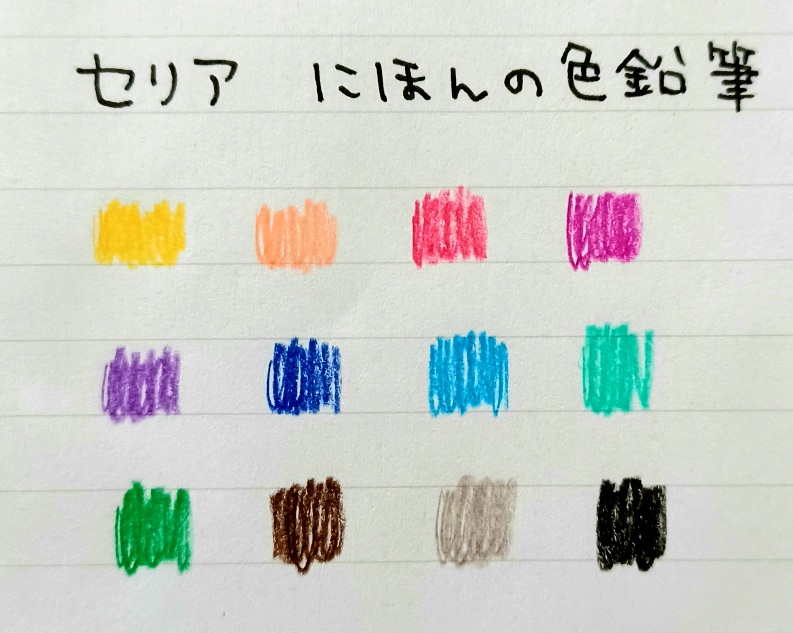 セリア にほんの色鉛筆